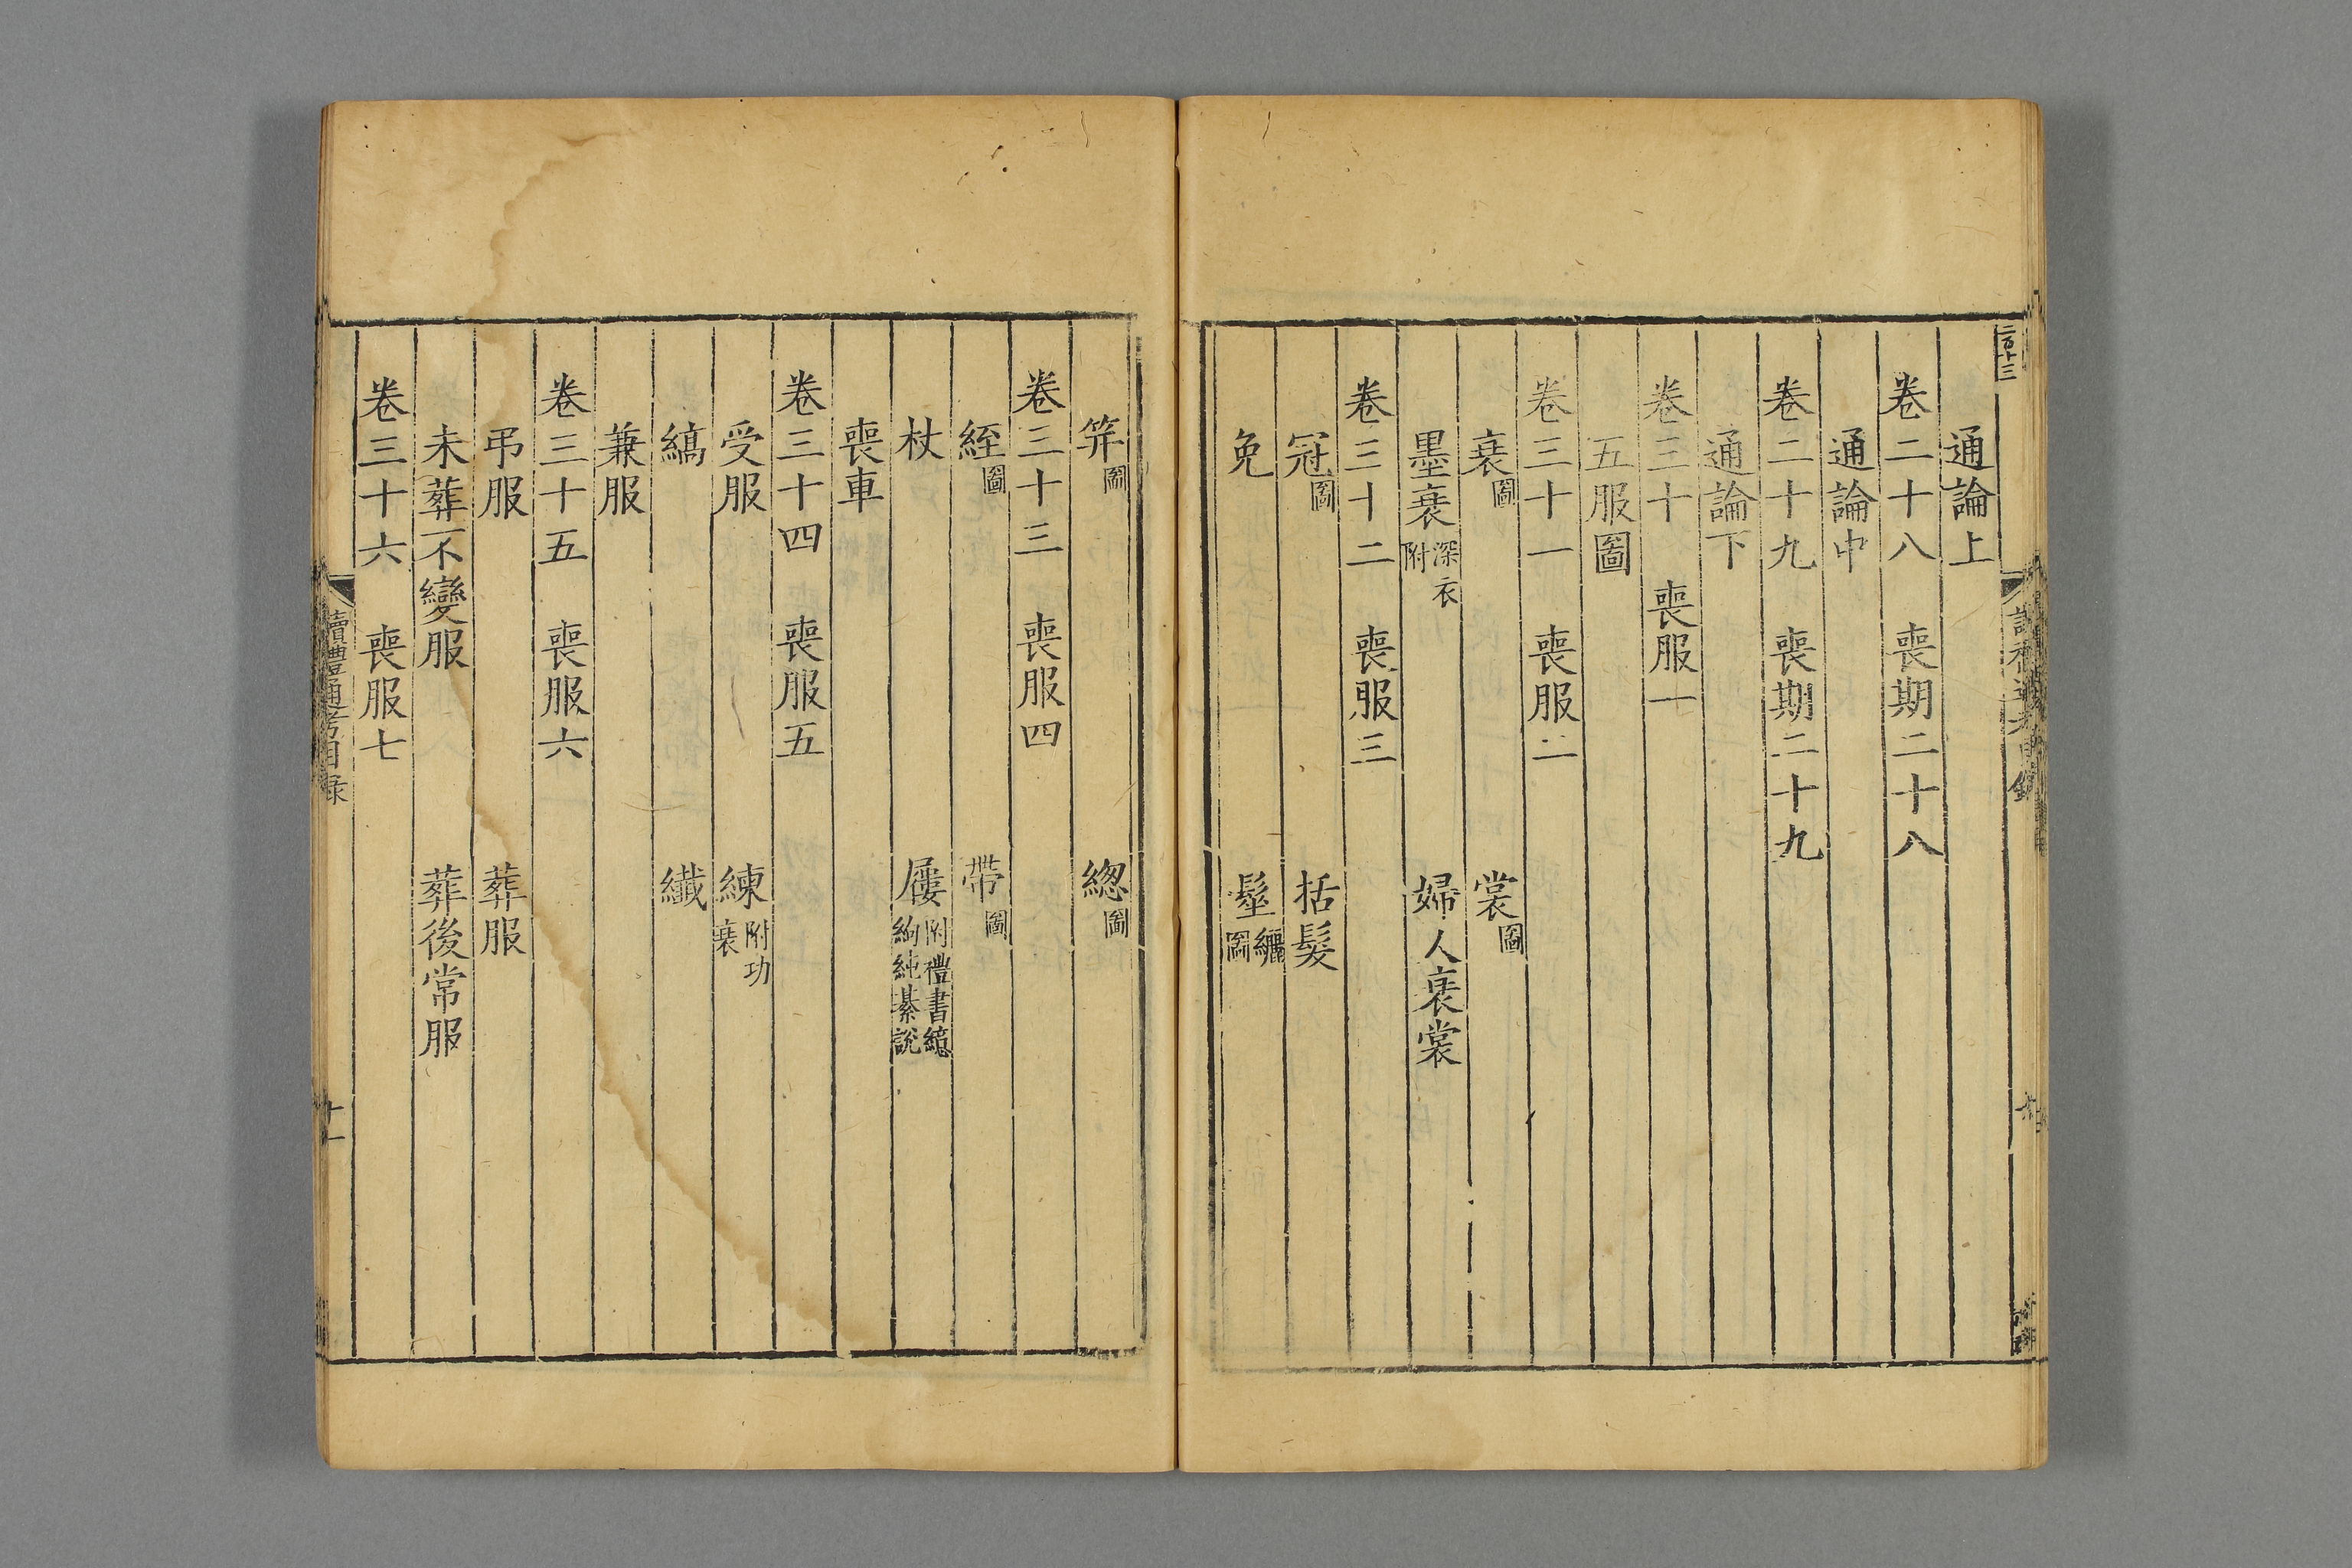 通論上
卷二十八　喪期二十八
通論中
卷二十九　喪期二十九
通論下
卷三十　喪服一
五服圖
卷三十一　喪服二
衰圖　裳圖
墨衰深衣附　婦人衰裳
卷三十二　喪服三
冠圖　括髮
免　髽纚圖
笄圖　總圖
卷三十三　喪服四
絰圖　帶圖
杖　屨附禮書繶絇純綦說
喪車
卷三十四　喪服五
受服　練附功衰
縞　纖
兼服
卷三十五　喪服六
弔服　葬服
未葬不變服　葬後常服
卷三十六　喪服七
讀禮通考目錄
十一